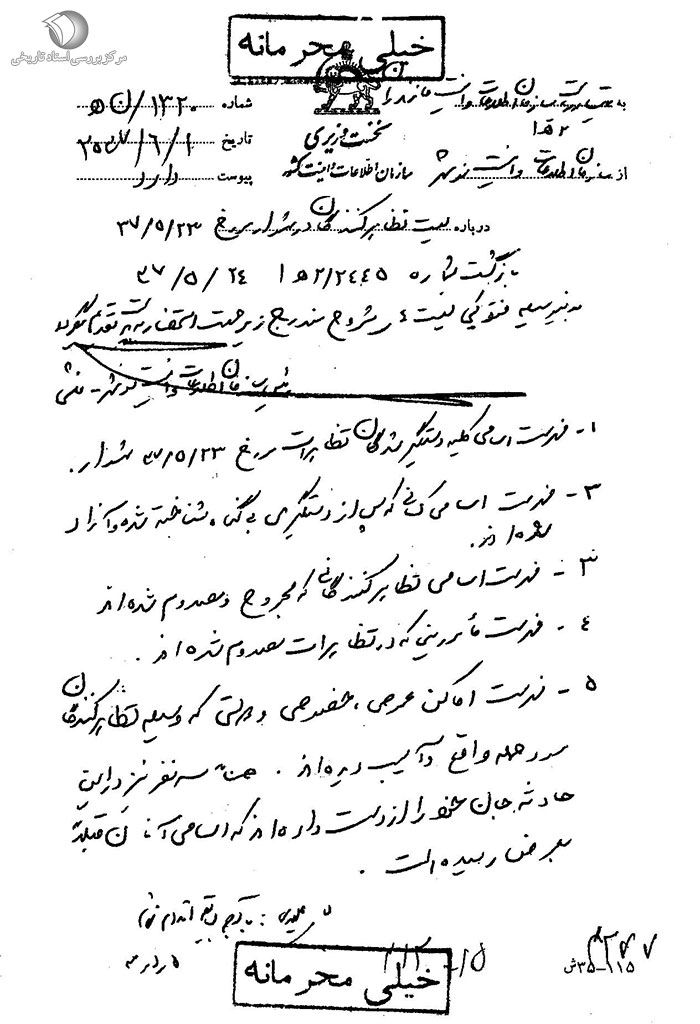 مرکز بررسی اسناد تاریخی
خیلی محرمانه
به ریاست سازمان اطلاعات و امنیت مازندران
۲ ه‍ ۱
از سازمان اطلاعات و امنیت نوشهر
نخست وزیری
سازمان اطلاعات و امنیت کشور
شماره ۱۳۲۰/ ه‍ ن
تاریخ ۲۵۳۷/۶/۱
پیوست دارد
درباره لیست تظاهرکنندگان در مورخ ۳۷/۵/۲۳
بازگشت بشماره ۲/۲۴۴۵ ه‍ ۱ ۳۷/۵/۲۴
بدینوسیله فتوکپی لیست های مشروح مندرج زیر جهت استحضار به پیوست تقدیم میگردد
رئیس سازمان اطلاعات و امنیت نوشهر -
۱- فهرست اسامی کلیه دستگیرشدگان تظاهرات مورخ ۳۷/۵/۲۳
۲- فهرست اسامی کسانی که پس از دستگیری بی گناه شناخته شده و آزاد
شده اند.
۳- فهرست اسامی تظاهرکنندگانی که مجروح و مصدوم شده اند
۴- فهرست مأمورینی که در تظاهرات مصدوم شده اند.
۵- فهرست اماکن عمومی، خصوصی و دولتی که وسیله تظاهرکنندگان
مورد حمله واقع و آسیب دیده اند. ضمناً سه نفر نیز در این
حادثه جان خود را از دست داده اند که اسامی آنان قبلاً
بعرض رسیده است.
خیلی محرمانه
۳۵-۱۱۵ش